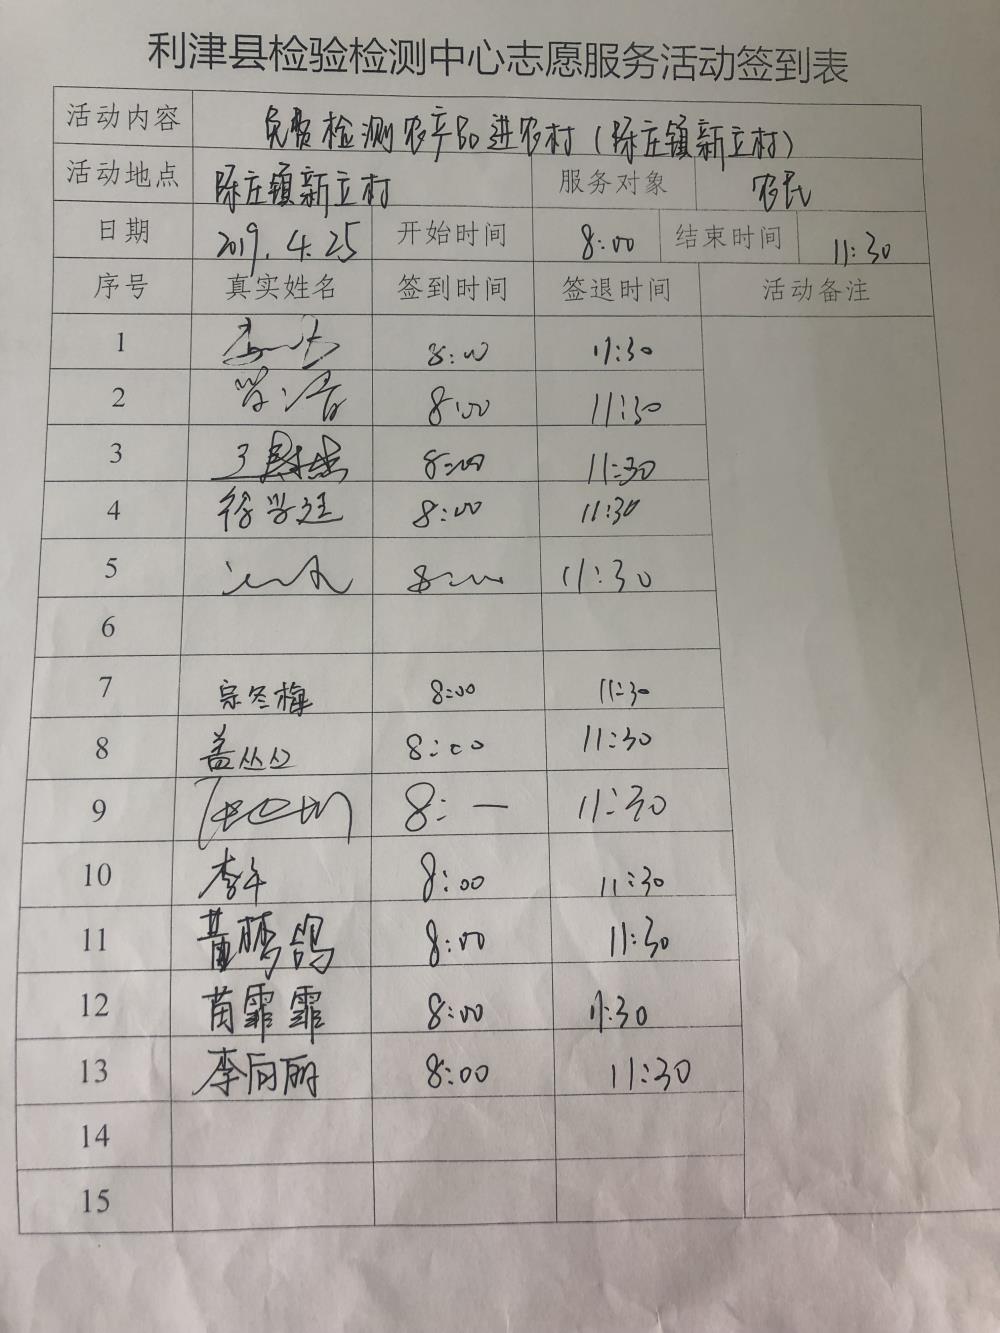 利津县检验检测中心志愿服务活动签到表
活动内容 免费检测农产品进农村（陈庄镇新立村）
活动地点 陈庄镇新立村 服务对象 农民
日期 2019.4.25 开始时间 8:00 结束时间 11:30
序号 真实姓名 签到时间 签退时间 活动备注
1 8:00 11:30
2 8:00 11:30
3 8:00 11:30
4 徐学廷 8:00 11:30
5 8:00 11:30
6
7 宗冬梅 8:00 11:30
8 盖丛丛 8:00 11:30
9 8:— 11:30
10 李 8:00 11:30
11 8:00 11:30
12 苗霏霏 8:00 11:30
13 李向丽 8:00 11:30
14
15